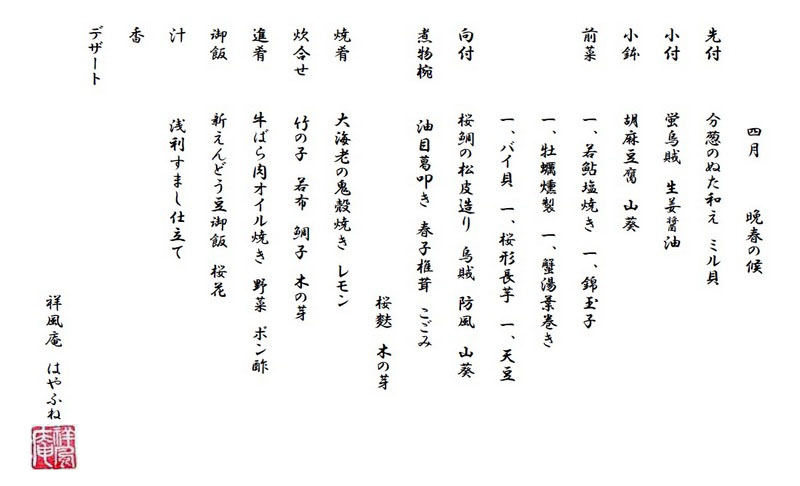 四月　晩春の候
先付　分葱のぬた和え　ミル貝
小付　蛍烏賊　生姜醤油
小鉢　胡麻豆腐　山葵
前菜　一、若鮎塩焼き　一、錦玉子
一、牡蠣燻製　一、蟹湯葉巻き
一、バイ貝　一、桜形長芋　一、天豆
向付　桜鯛の松皮造り　烏賊　防風　山葵
煮物椀　油目葛叩き　春子椎茸　こごみ
桜麩　木の芽
焼肴　大海老の鬼殻焼き　レモン
炊合せ　竹の子　若布　鯛子　木の芽
進肴　牛ばら肉オイル焼き　野菜　ポン酢
御飯　新えんどう豆御飯　桜花
汁　浅利すまし仕立て
香
デザート
祥風庵　はやふね
祥風庵